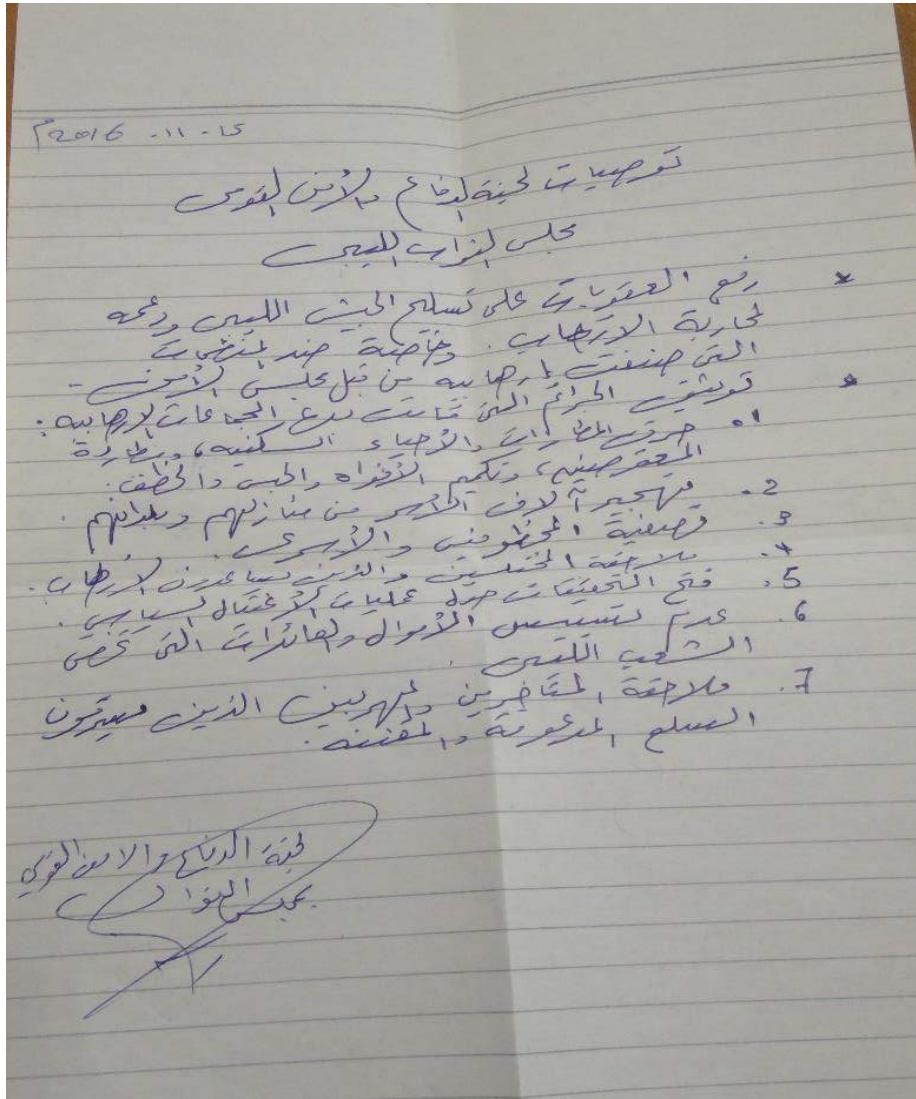 2016 - 11 - 15م
توصيات لجنة الدفاع والأمن القومي
مجلس النواب الليبي
* رفع العقوبات على تسليح الجيش الليبي ودعمه
لمحاربة الإرهاب. وخاصة ضد المنظمات
التي صنفت إرهابية من قبل مجلس الأمن -
* توثيق الجرائم التي قامت بها الجماعات الإرهابية :
1. حرق المطارات والأحياء السكنية، ومطاردة
المعترضين، وتكميم الأفواه والحبس والخطف.
2. تهجير آلاف الأسر من منازلهم وبلدانهم.
3. تصفية المخطوفين والأسرى.
4. ملاحقة المختلسين والذين يساعدون الإرهاب.
5. فتح التحقيقات حول عمليات الاغتيال السياسي.
6. عدم تسييس الأموال والعائدات التي تخص
الشعب الليبي.
7. ملاحقة المتاجرين والمهربين الذين يسرقون
السلع المدعومة والمقننة.
لجنة الدفاع والامن القومي
بمجلس النواب